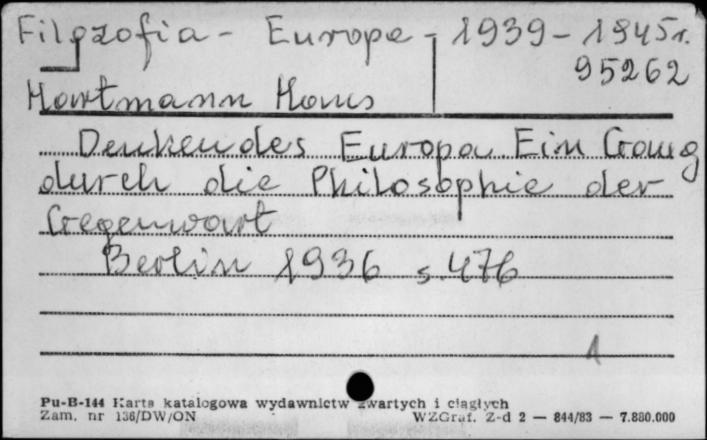 Filozofia - Europa - 1939 - 1945 r.
95262
Hartmann Hans
Denkendes Europa Ein Gang
durch die Philosophie der
Gegenwart
Berlin 1936 s. 476
1
Pu-B-144 Karta katalogowa wydawnictw zwartych i ciągłych
Zam. nr 136/DW/ON WZGraf. Z-d 2 — 844/83 — 7.880.000